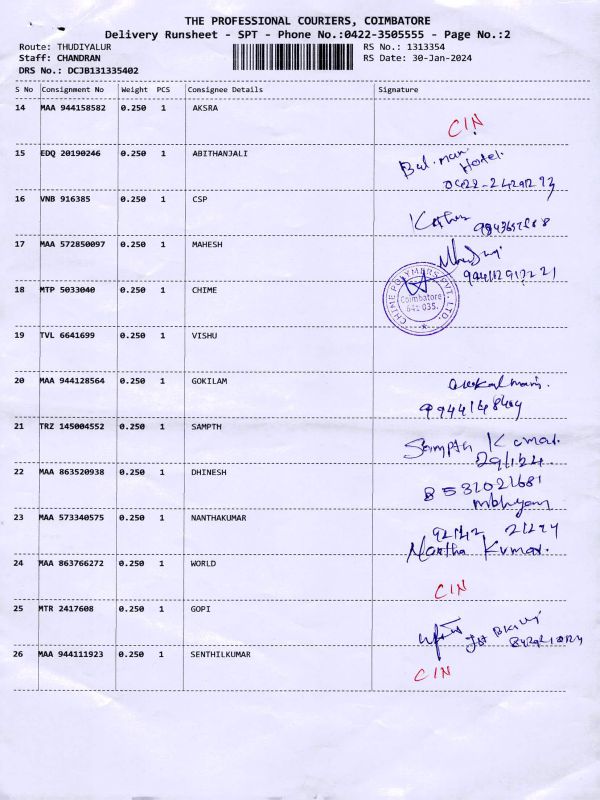 THE PROFESSIONAL COURIERS, COIMBATORE
Delivery Runsheet - SPT - Phone No.:0422-3505555 - Page No.:2
Route: THUDIYALUR RS No.: 1313354
Staff: CHANDRAN RS Date: 30-Jan-2024
DRS No.: DCJB131335402
S No Consignment No Weight PCS Consignee Details Signature
14 MAA 944158582 0.250 1 AKSRA
CIN
15 EDQ 20190246 0.250 1 ABITHANJALI
Hotel.
16 VNB 916385 0.250 1 CSP
17 MAA 572850097 0.250 1 MAHESH
18 MTP 5033040 0.250 1 CHIME
CHIME POLYMERS PVT. LTD.
Coimbatore
641 035.
19 TVL 6641699 0.250 1 VISHU
20 MAA 944128564 0.250 1 GOKILAM
21 TRZ 145004552 0.250 1 SAMPTH
Sampth Kumar.
22 MAA 863520938 0.250 1 DHINESH
23 MAA 573340575 0.250 1 NANTHAKUMAR
Nantha Kumar.
24 MAA 863766272 0.250 1 WORLD
CIN
25 MTR 2417608 0.250 1 GOPI
26 MAA 944111923 0.250 1 SENTHILKUMAR
CIN